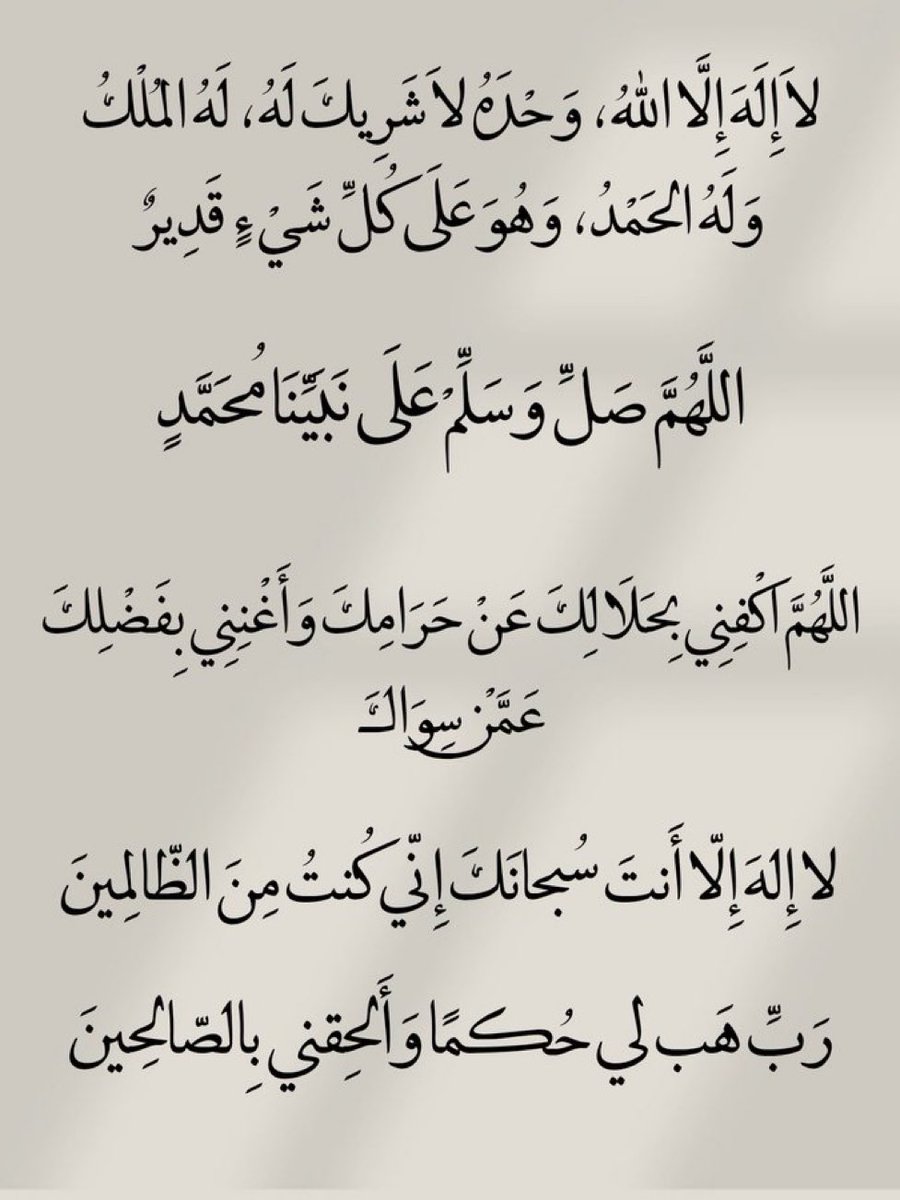 لاَ إِلَهَ إِلَّا اللهُ، وَحْدَهُ لاَ شَرِيكَ لَهُ، لَهُ المُلْكُ
وَلَهُ الحَمْدُ، وَهُوَ عَلَى كُلِّ شَيْءٍ قَدِيرٌ
اللَّهُمَّ صَلِّ وَسَلِّمْ عَلَى نَبَيِّنَا مُحَمَّدٍ
اللَّهُمَّ اكْفِنِي بِحَلَالِكَ عَنْ حَرَامِكَ وَأَغْنِنِي بِفَضْلِكَ
عَمَّنْ سِوَاكَ
لا إِلهَ إِلّا أَنتَ سُبحانَكَ إِنّي كُنتُ مِنَ الظّالِمينَ
رَبِّ هَب لي حُكمًا وَأَلحِقني بِالصّالِحينَ